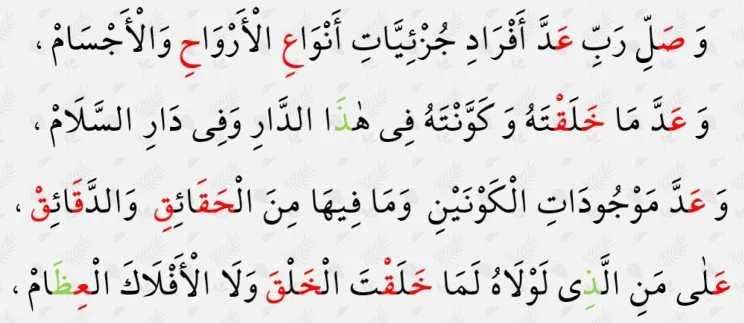 وَ صَلِّ رَبِّ عَدَّ أَفْرَادِ جُزْئِيَّاتِ أَنْوَاعِ الْأَرْوَاحِ وَالْأَجْسَامْ ،
وَ عَدَّ مَا خَلَقْتَهُ وَ كَوَّنْتَهُ فِى هٰذَا الدَّارِ وَفِى دَارِ السَّلَامْ ،
وَ عَدَّ مَوْجُودَاتِ الْكَوْنَيْنِ وَمَا فِيهَا مِنَ الْحَقَائِقِ وَالدَّقَائِقْ ،
عَلٰى مَنِ الَّذِى لَوْلَاهُ لَمَا خَلَقْتَ الْخَلْقَ وَلَا الْأَفْلَاكَ الْعِظَامْ ،